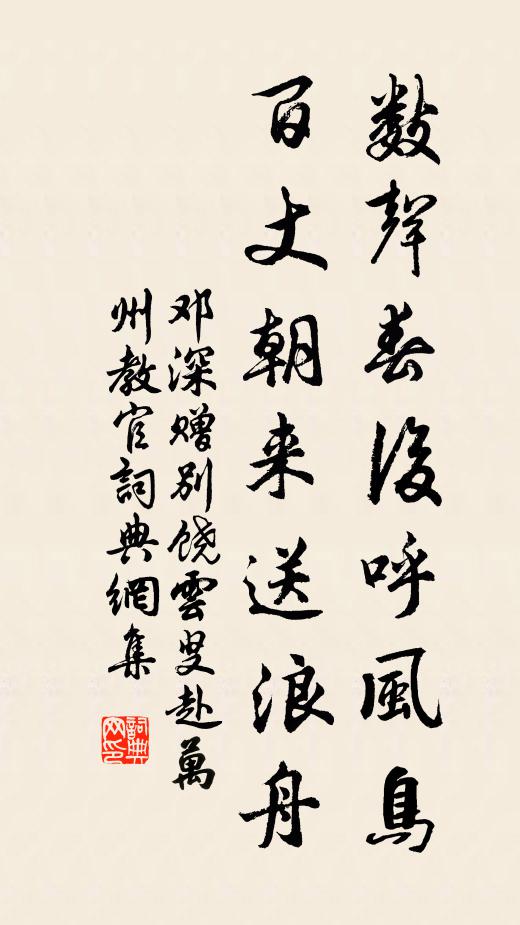 数聲春後呼風鳥
百丈朝来送浪舟
邓深赠别饶雲叟赴萬
州教官詞典網集
詞典網印